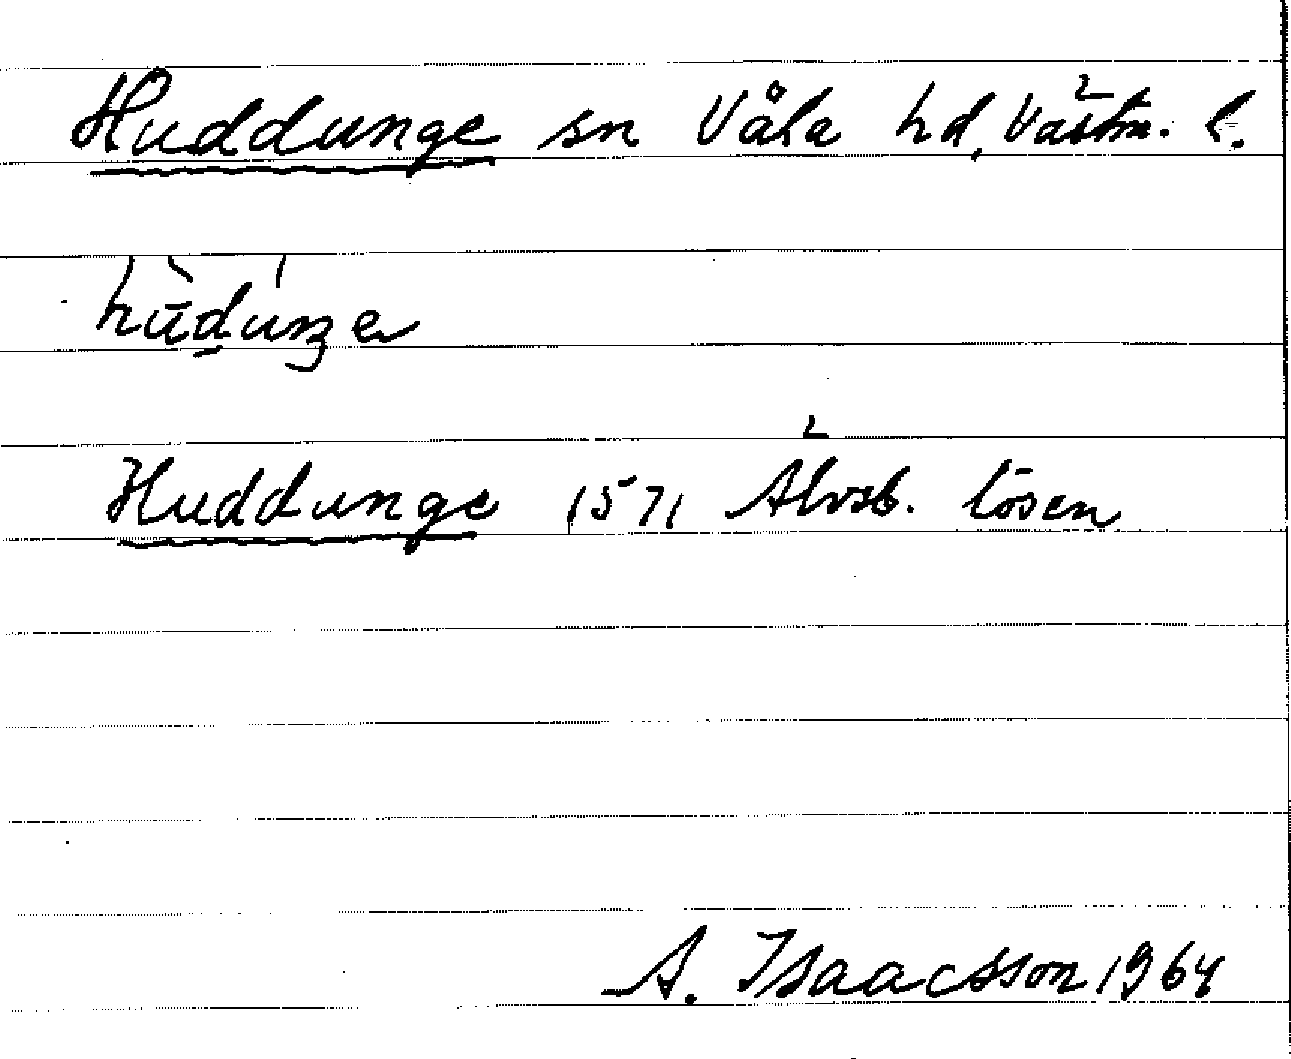 Huddunge sn Våla hd, Västm. l.
hùdunge
Huddunge 1571 Älvsb. lösen
A. Isaacsson 1964